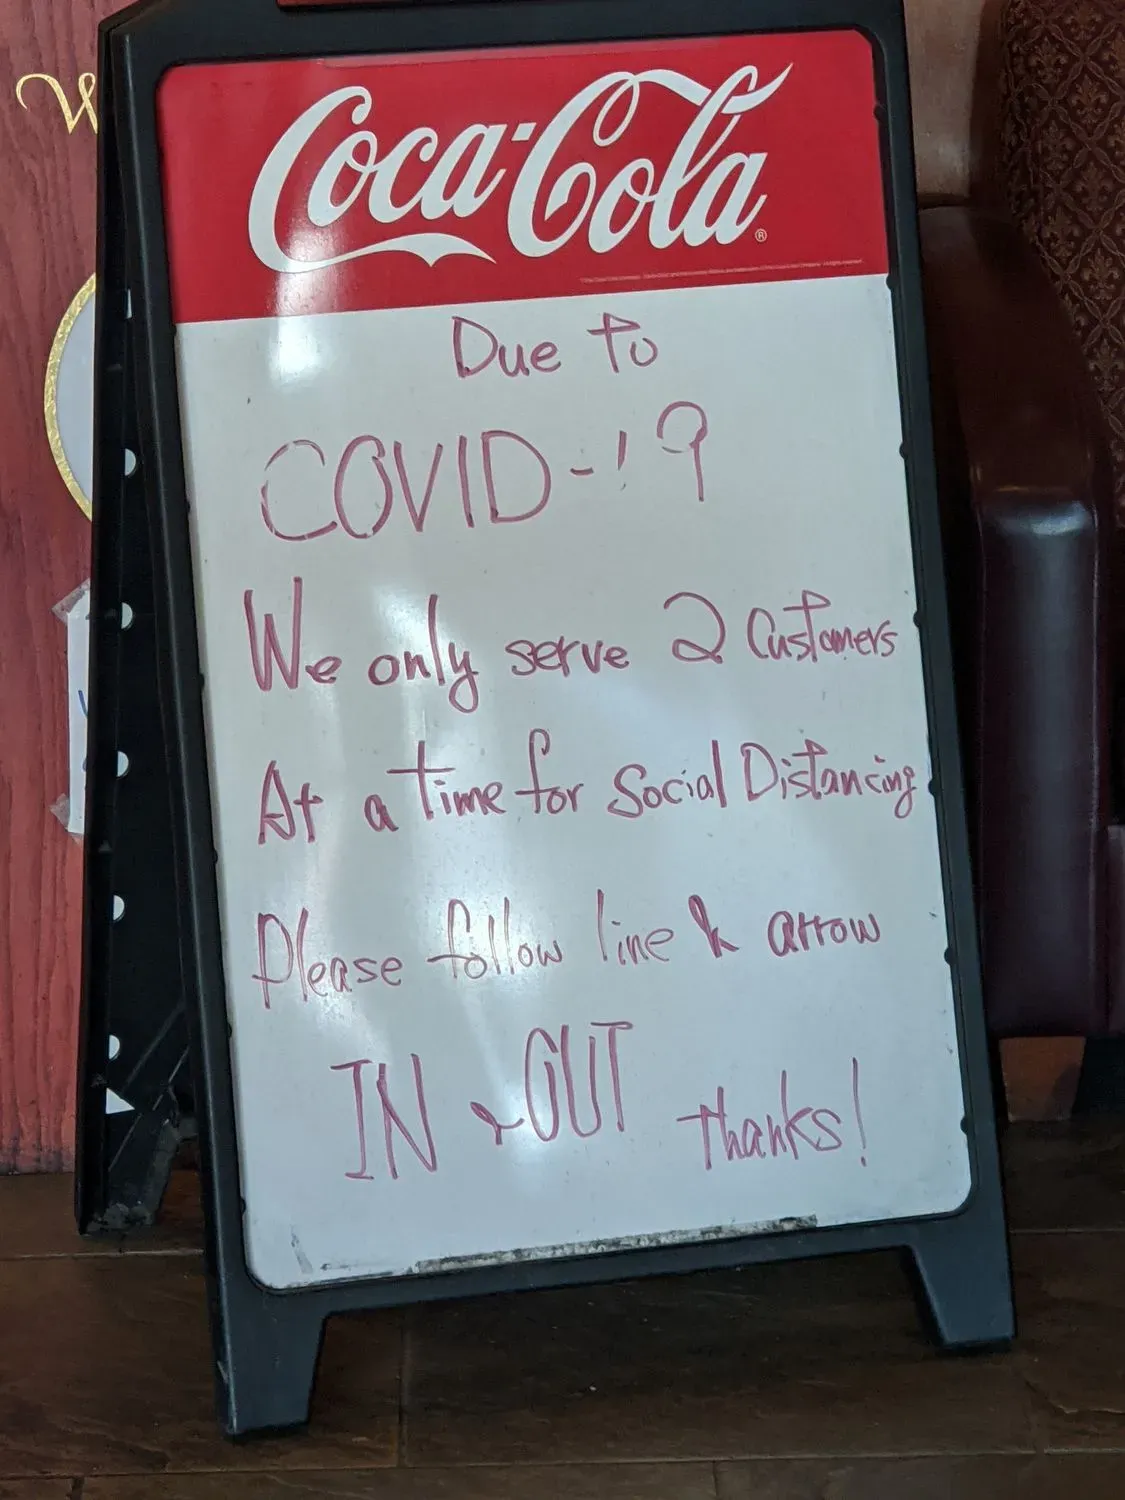 Coca-Cola
Due to
COVID-19
We only serve 2 Customers
At a time for Social Distancing
Please follow line & arrow
IN & OUT thanks!